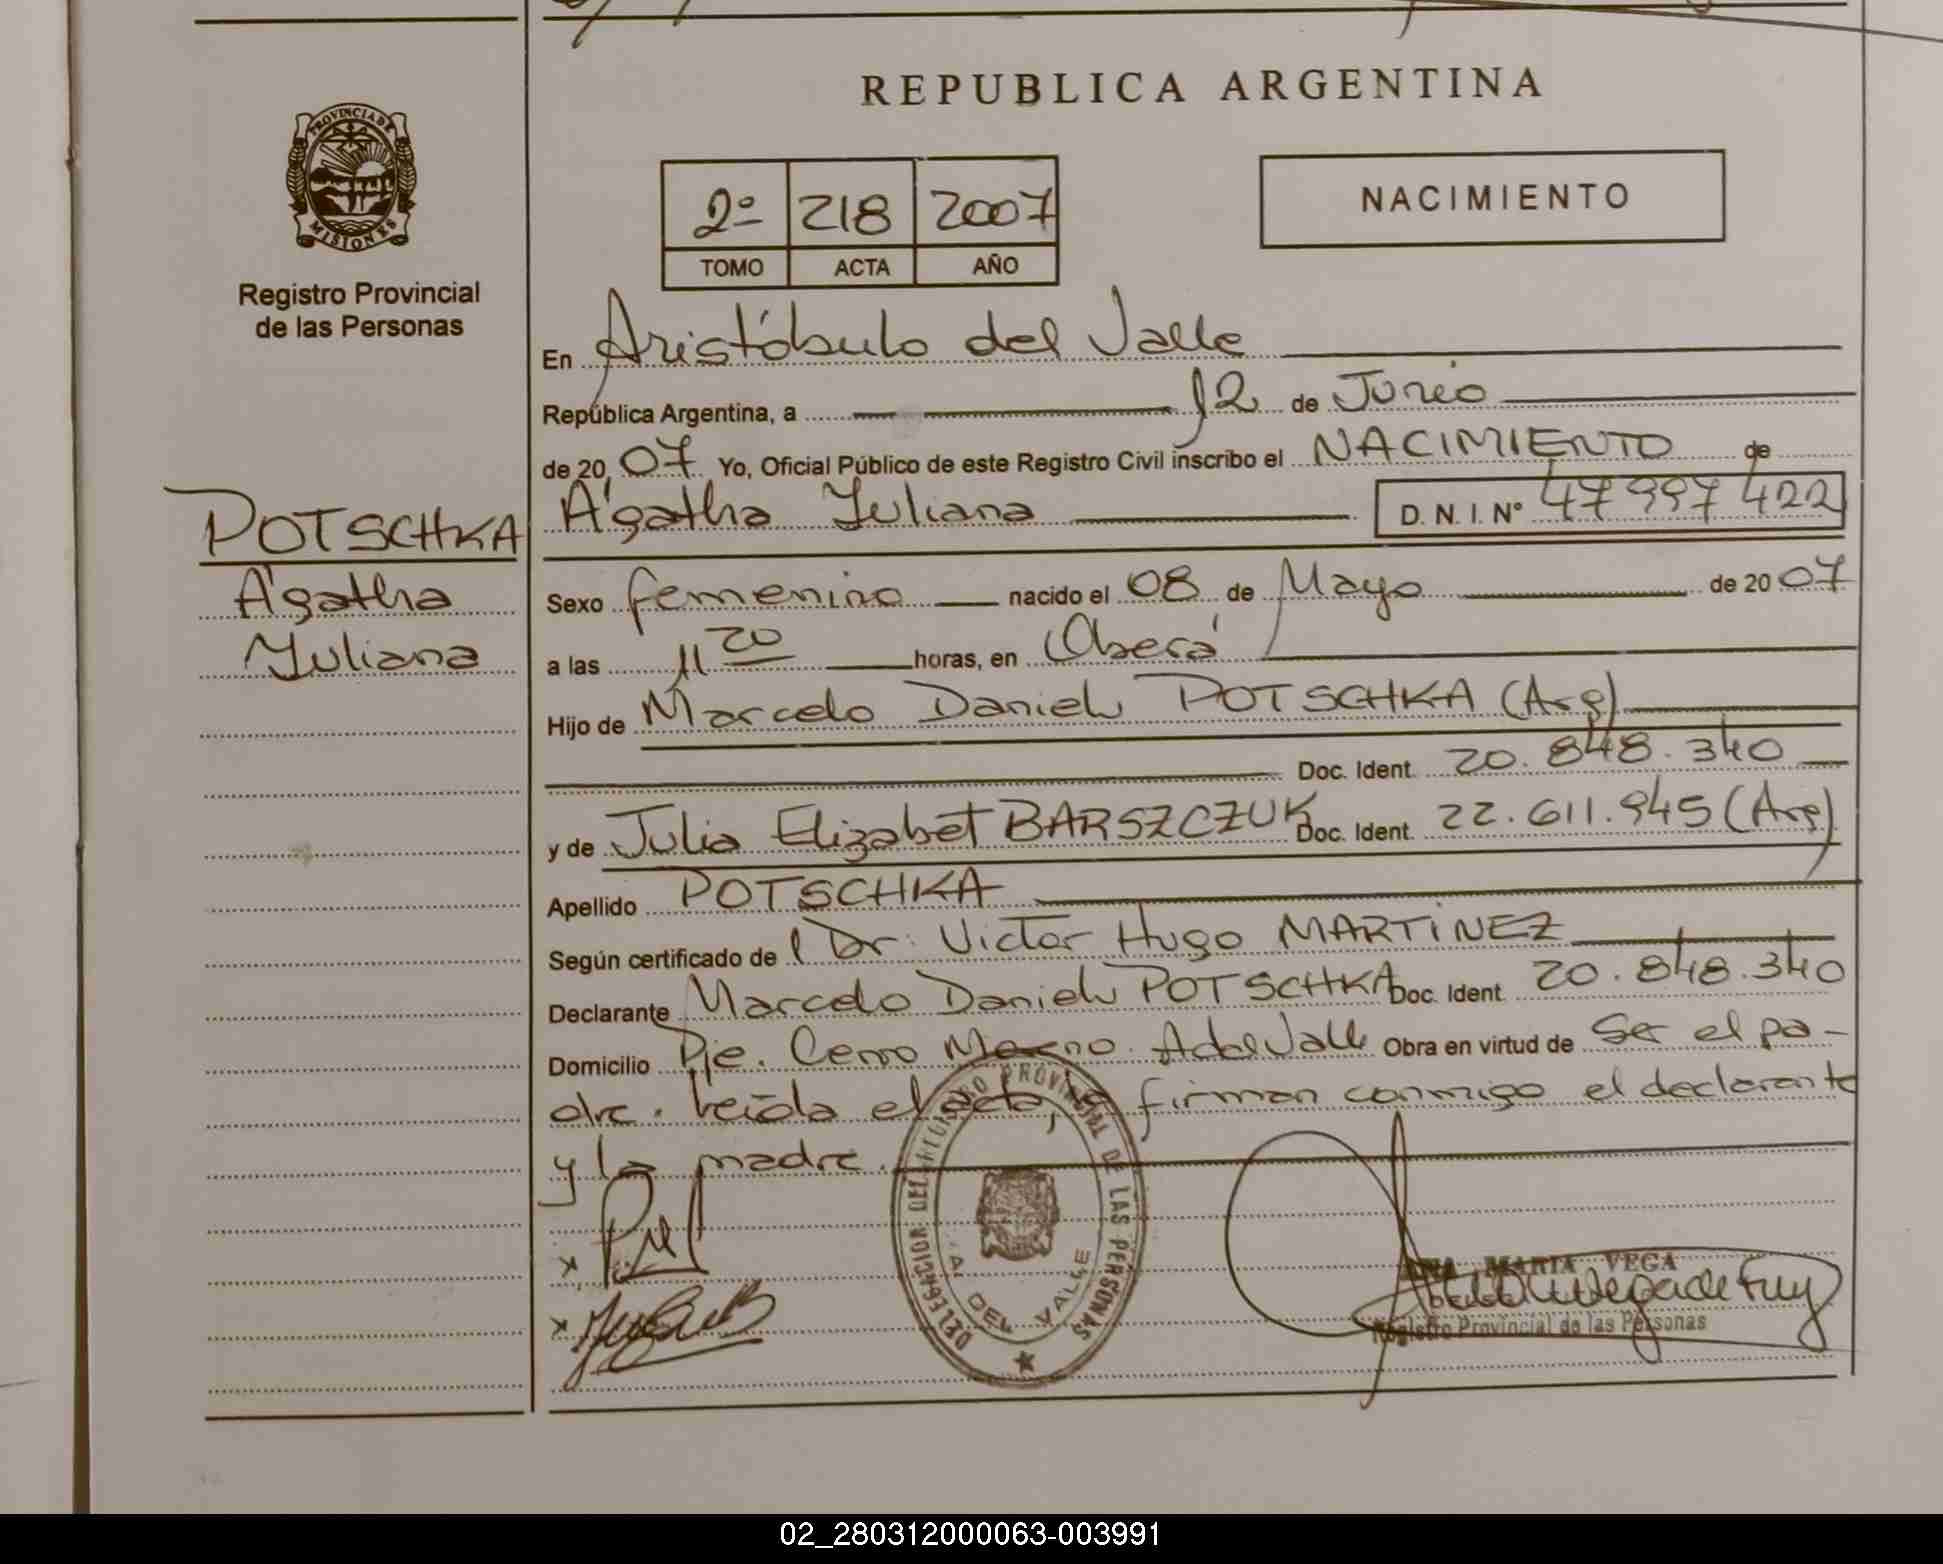 REPUBLICA ARGENTINA
PROVINCIA DE
MISIONES
Registro Provincial
de las Personas
2º 218 2007
TOMO ACTA AÑO
NACIMIENTO
En Aristóbulo del Valle
República Argentina, a 12 de Junio
de 2007 Yo, Oficial Público de este Registro Civil inscribo el NACIMIENTO de
Ágatha Yuliana D. N. I. Nº 47 997 422
POTSCHKA
Ágatha
Yuliana
Sexo femenino nacido el 08 de Mayo de 2007
a las 11 20 horas, en Oberá
Hijo de Marcelo Daniel POTSCHKA (Arg)
Doc. Ident. 20.848.340
y de Julia Elizabet BARSZCZUK Doc. Ident. 22.611.945 (Arg)
Apellido POTSCHKA
Según certificado de l Dr. Victor Hugo MARTINEZ
Declarante Marcelo Daniel POTSCHKA Doc. Ident. 20.848.340
Domicilio Pje. Cerro Moreno. A del Valle Obra en virtud de Ser el pa-
dre. Leída el acta, firman conmigo el declarante
y la madre.
DELEGACION DEL REGISTRO PROVINCIAL DE LAS PERSONAS
A. DEL VALLE
x
x
MARIA VEGA
Registro Provincial de las Personas
02_280312000063-003991